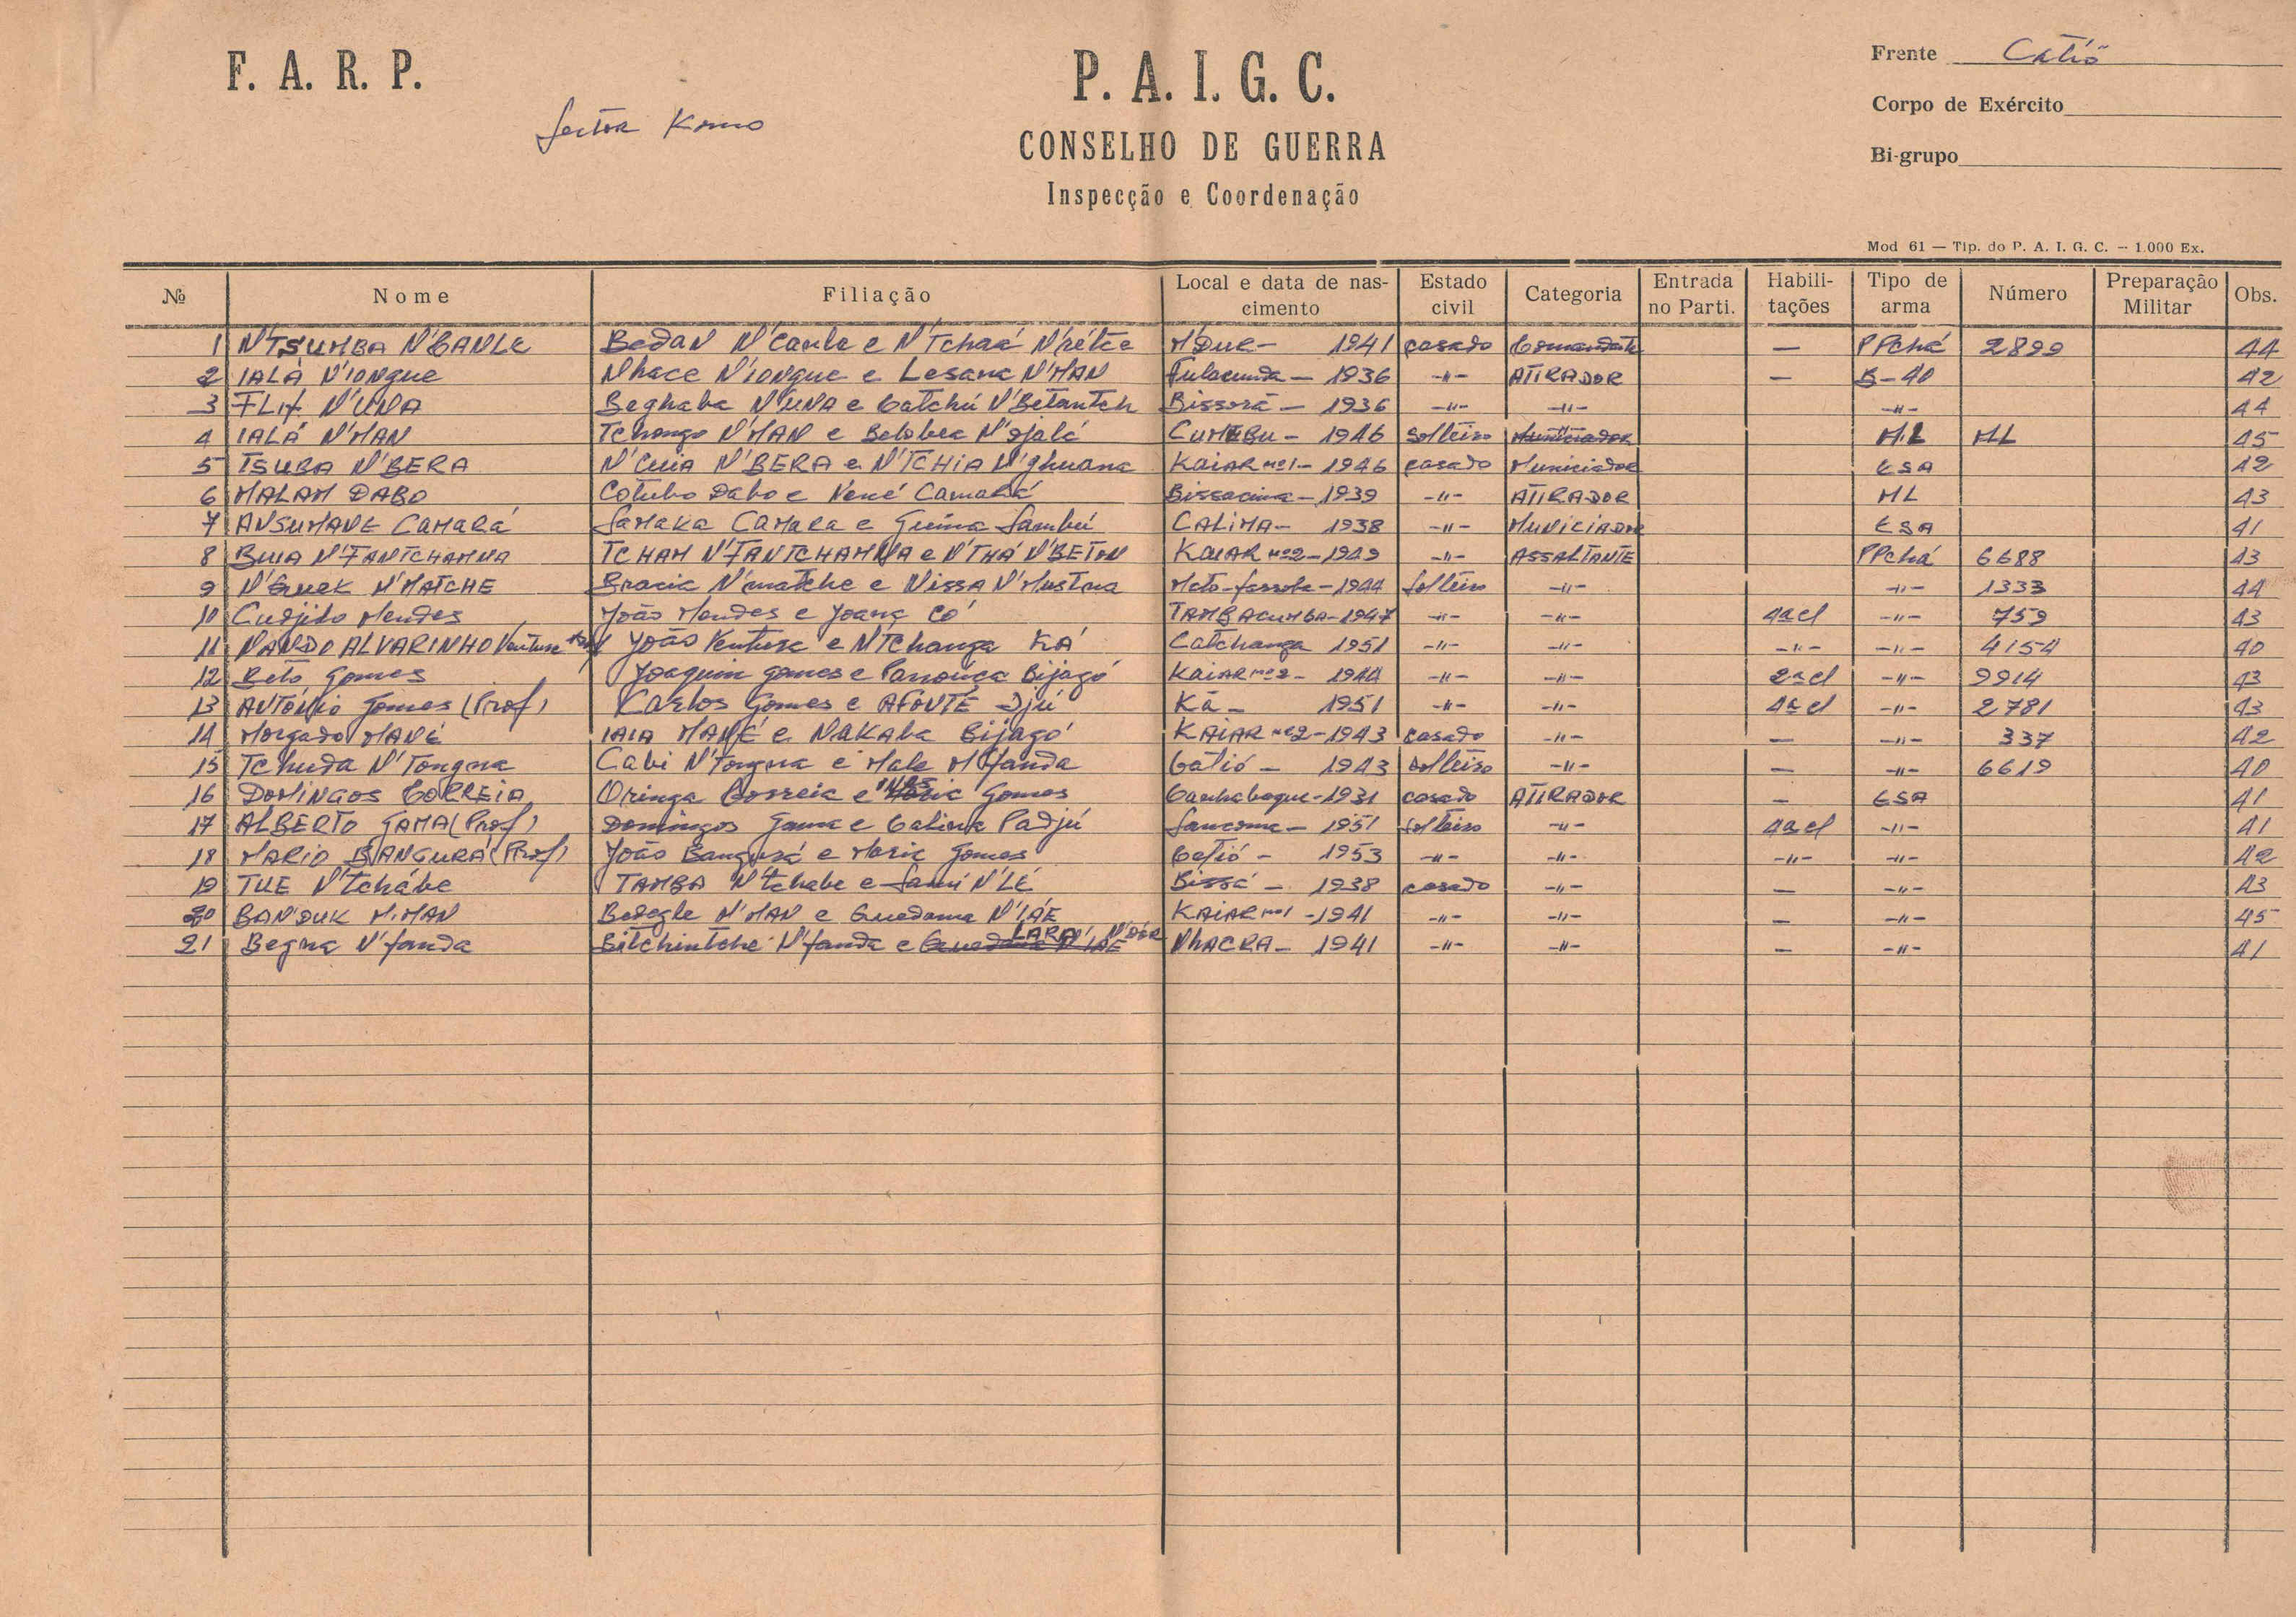 F. A. R. P.
Sector Komo
P. A. I. G. C.
CONSELHO DE GUERRA
Inspecção e Coordenação
Frente Catió
Corpo de Exército
Bi-grupo
Mod 61 — Tip. do P. A. I. G. C. — 1.000 Ex.
№ Nome Filiação Local e data de nascimento Estado civil Categoria Entrada no Parti. Habilitações Tipo de arma Número Preparação Militar Obs.
1 N'TSUMBA N'BANLE Bedan N'Canla e N'Tchaá N'rétce N'DUR - 1941 casado Comandante — PPchá 2899 44
2 IALÁ N'iongue Nhace N'iongue e Lesana N'MAN Fulacunda - 1936 -"- ATIRADOR — B-40 42
3 N'UNA Beghaba N'UNA e Catchú N'Betantch Bissorã - 1936 -"- -"- -"- 44
4 IALÁ N'MAN Tchongo N'MAN e Belobea N'djalá CUMEBU - 1946 solteiro Municiador M.L ML 45
5 TSUBA N'BERA N'Cuia N'BERA e N'TCHIA N'ghuana KAIAR nº1 - 1946 casado Municiador ESA 42
6 MALAM DABO Cotubo Dabo e Nené Camará Bissacima - 1939 -"- ATIRADOR ML 43
7 ANSUMANE CAMARÁ SAMAKA CAMARA e Guina Sambú CALIMA - 1938 -"- MUNICIADOR ESA 41
8 BUIA N'FANTCHAMNA TCHAM N'FANTCHAMNA e N'THÁ N'BETON KAIAR nº2 - 1949 -"- ASSALTANTE PPchá 6688 43
9 N'Guek N'MATCHE Bracia N'matche e Nissa N'Mustna Mato-farroba - 1944 solteiro -"- -"- 1333 44
10 Cudjito Mendes João Mendes e Joana Có TAMBACUMBA - 1947 -"- -"- 4ªcl -"- 759 43
11 NANDO ALVARINHO Ventura João Ventura e NTchanga KÁ Catchanga 1951 -"- -"- -"- -"- 4154 40
12 Betó Gomes Joaquim gomes e Panouca Bijagó KAIAR nº2 - 1944 -"- -"- 2ªcl -"- 9914 43
13 ANTÓNIO Gomes (Prof) Carlos Gomes e AFONTE Djú Kã - 1951 -"- -"- 4ªcl -"- 2781 43
14 Morgado MANÉ IAIA MANÉ e NAKABA Bijagó KAIAR nº2 - 1943 casado -"- — -"- 337 42
15 Tchuda N'Tongna Cabi N'Tongna e Male N'fanda Catió - 1943 solteiro -"- — -"- 6619 40
16 DOMINGOS CORREIA Oringa Correia e INÊS Gomes Canhabaque - 1931 casado ATIRADOR — ESA 41
17 ALBERTO GAMA (Prof) Domingos Gama e Catina Padjú - 1951 solteiro -"- 4ªcl -"- 41
18 MARIO BANGURÁ (Prof) João Bangurá e Maria Gomes Catió - 1953 -"- -"- -"- -"- 42
19 TUE N'tchábe TAMBA N'tchabe e Samí N'LÉ Bissá - 1938 casado -"- — -"- 43
20 BANDUK N'MAN Bedegle N'MAN e Guedama N'IÁE KAIAR nº1 - 1941 -"- -"- — -"- 45
21 Begna N'fanda Bitchintche N'fanda e Guedama N'IÁE LARA N'DOR NhACRA - 1941 -"- -"- — -"- 41